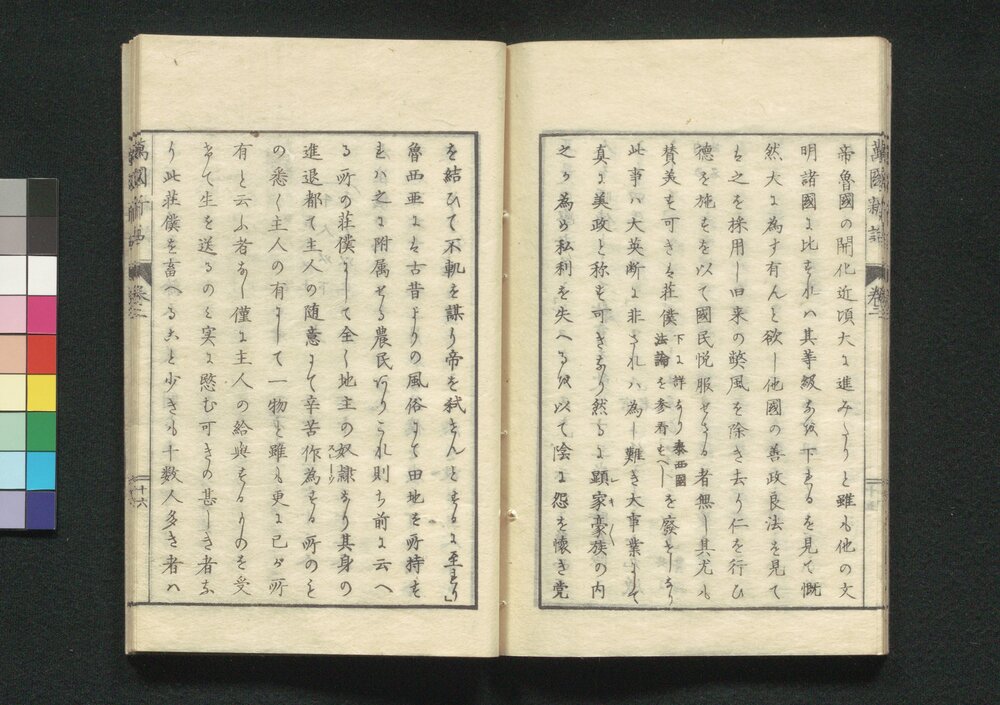 萬國新話
卷三
帝魯國の開化近頃大に進みたりと雖も他の文
明諸國に比すれハ其等級なほ下れるを見て慨
然大に為す有んと欲し他國の善政良法を見て
ハ之を採用し旧来の獘風を除き去り仁を行ひ
徳を施すを以て國民悦服せさる者無し其尤も
賛美す可きハ荘僕
下に詳なり泰西國
法論を参看すへし
を廢せしなり
此事ハ大英断に非されハ為し難き大事業にして
真に美政と称す可きなり然るに顕家豪族の内
之か為め私利を失へるを以て陰に怨を懐き党
を結ひて不軌を謀り帝を弑せんとするに至れり」
魯西亜にハ古昔よりの風俗にて田地を所持す
れハ之に附属せる農民ありこれ則ち前に云へ
る所の荘僕にして全く地主の奴隷なり其身の
進退都て主人の随意にて辛苦作為する所のも
の悉く主人の有にして一物と雖も更に己か所
有と云ふ者なし僅に主人の給與するものを受
けて生を送るのミ実に愍む可きの甚しき者な
り此荘僕を畜へること少きも十数人多き者ハ
萬國新話
卷三
十六